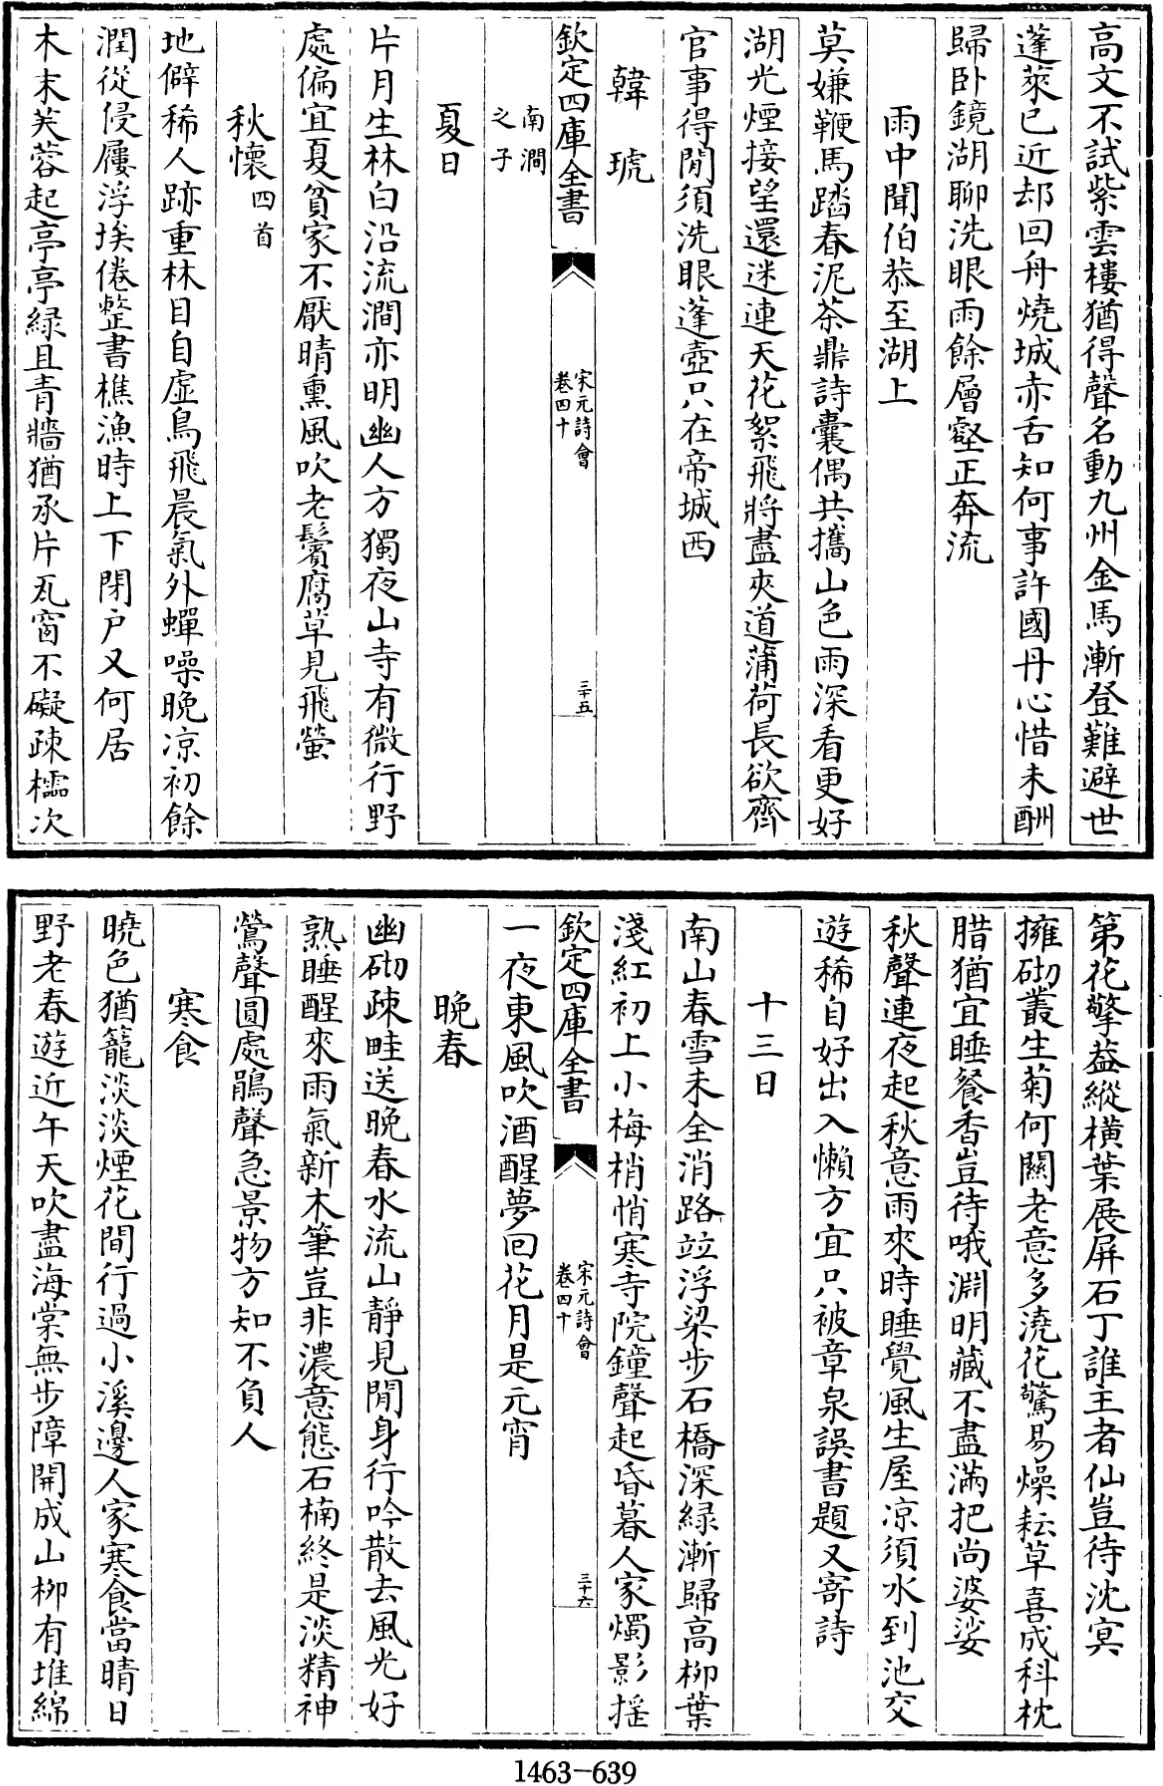 高文不試紫雲樓猶得聲名動九州金馬漸登難避世
蓬萊已近却回舟燒城赤舌知何事許國丹心惜未酬
歸卧鏡湖聊洗眼雨餘層壑正奔流
雨中聞伯恭至湖上
莫嫌鞭馬踏春泥茶鼎詩囊偶共攜山色雨深看更好
湖光煙接望還迷連天花絮飛將盡夾道蒲荷長欲齊
官事得閒須洗眼蓬壺只在帝城西
韓琥
欽定四庫全書
宋元詩會
卷四十
三十五
南澗
之子
夏日
片月生林白沿流澗亦明幽人方獨夜山寺有微行野
處偏宜夏貧家不厭晴熏風吹老鬢腐草見飛螢
秋懷四首
地僻稀人跡重林目自虛鳥飛晨氣外蟬噪晚凉初餘
潤從侵屨浮埃倦整書樵漁時上下閉户又何居
木末芙蓉起亭亭緑且青牆猶承片瓦窗不礙疎櫺次
第花擎葢縱橫葉展屏石丁誰主者仙豈待沈冥
擁砌叢生菊何關老意多澆花驚易燥耘草喜成科枕
腊猶宜睡餐香豈待哦淵明藏不盡滿把尚婆娑
秋聲連夜起秋意雨來時睡覺風生屋凉須水到池交
遊稀自好出入懶方宜只被章泉誤書題又寄詩
十三日
南山春雪未全消路竝浮梁步石橋深緑漸歸高柳葉
淺紅初上小梅梢悄寒寺院鐘聲起昏暮人家燭影揺
欽定四庫全書
宋元詩會
卷四十
三十六
一夜東風吹酒醒夢回花月是元宵
晚春
幽砌疎畦送晚春水流山靜見閒身行吟散去風光好
熟睡醒來雨氣新木筆豈非濃意態石楠終是淡精神
鶯聲圓處鵑聲急景物方知不負人
寒食
曉色猶籠淡淡煙花間行過小溪邊人家寒食當晴日
野老春遊近午天吹盡海棠無步障開成山柳有堆綿
1463-639